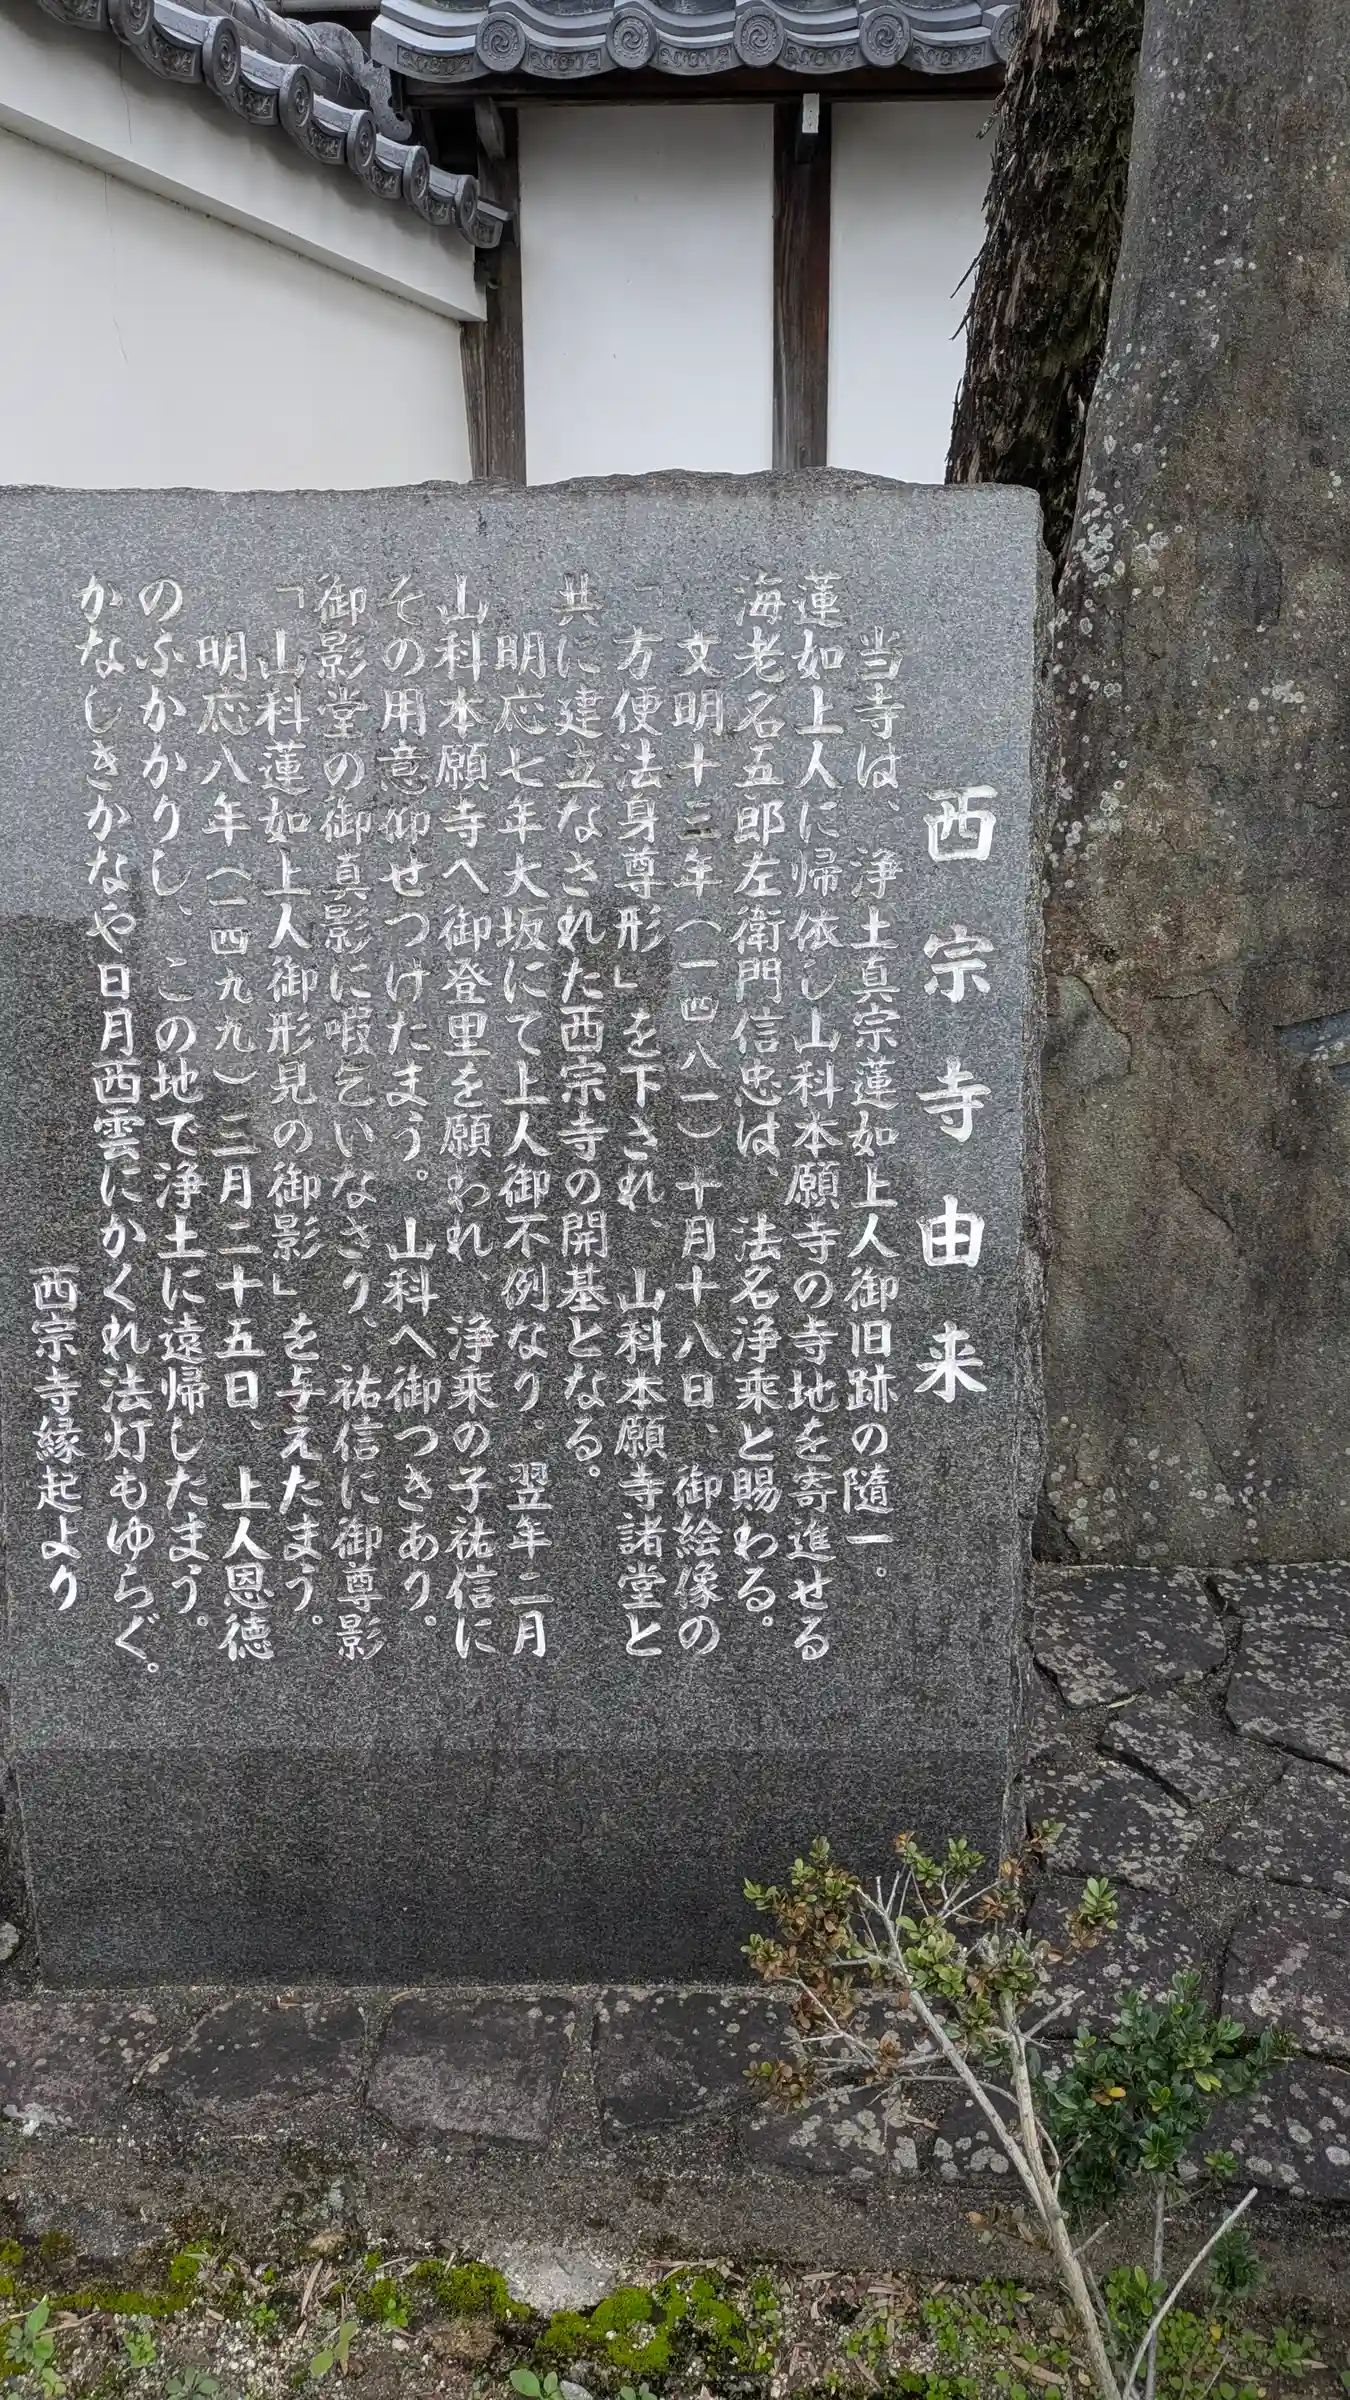 西宗寺由来
当寺は、浄土真宗蓮如上人御旧跡の随一。
蓮如上人に帰依し山科本願寺の寺地を寄進せる
海老名五郎左衛門信忠は、法名浄乗と賜わる。
文明十三年(一四八一)十月十八日、御絵像の
「方便法身尊形」を下され、山科本願寺諸堂と
共に建立なされた西宗寺の開基となる。
明応七年大坂にて上人御不例なり。翌年二月
山科本願寺へ御登里を願われ、浄乗の子祐信に
その用意仰せつけたまう。山科へ御つきあり。
御影堂の御真影に暇乞いなさり、祐信に御尊影
「山科蓮如上人御形見の御影」を与えたまう。
明応八年(一四九九)三月二十五日、上人恩徳
のふかかりし、この地て浄土に遠帰したまう。
かなしきかなや日月西雲にかくれ法灯もゆらぐ。
西宗寺縁起より